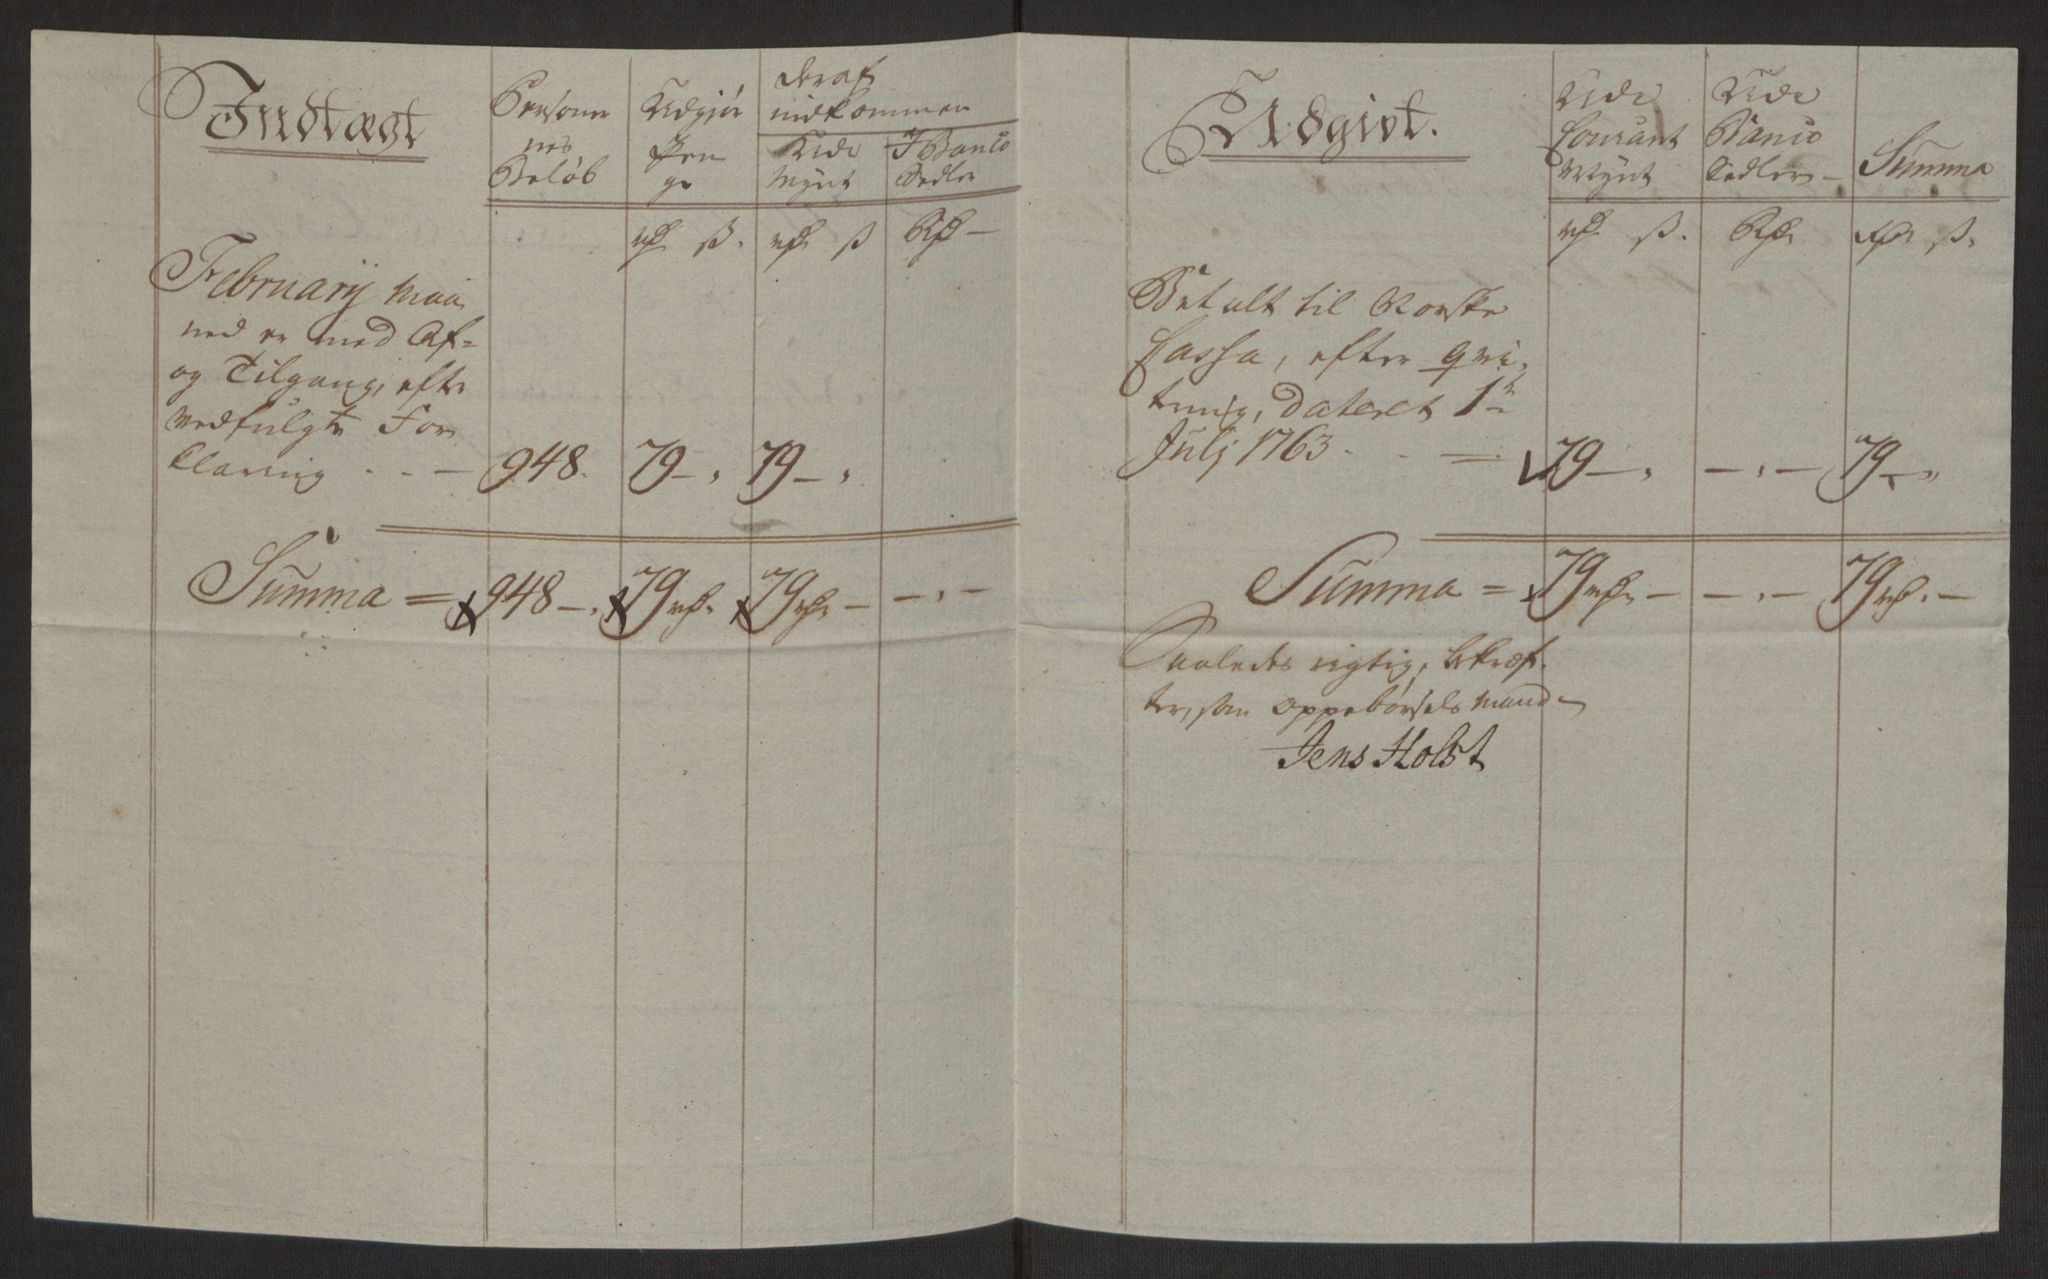 Indtægt
Personer
nes
Beløb
Udgjør
Pen
ge
deraf
indkommen
Rede
Mynt
I Banco
Sedler
rd ß. rd ß Rd –
February Maa
ned er med Af=
og Tilgang, efter
Vedfulgte For
Claring . . – 948. 79 – , 79 – ,
Summa = 948 – . 79 rd. 79 rd. – – . –
Udgivt.
Rede
Courant
Mynt
Rede
Banco
Sedler –
Summa
rd ß. Rd rd ß.
Betalt til Norske
Cassa, efter qvi,
tering, Dateret 1te
Julj 1763 . . = 79 – , – . – 79 – „
Summa = 79 rd. – – . – 79 rd. –
Saaledes rigtig, bekræf,
ter, som Oppebørsels Mand –
Jens Holst